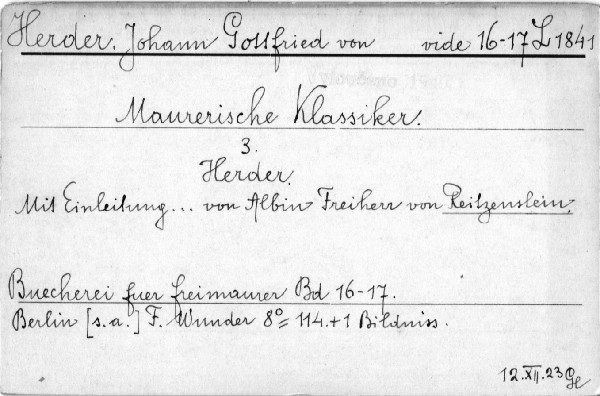 Herder, Johann Gottfried von vide 16-17 L 1841
Maurerische Klassiker.
3.
Herder.
Mit Einleitung... von Albin Freiherr von Reitzenstein.
Buecherei fuer freimaurer Bd 16-17.
Berlin [s.a.] F. Wunder 8º= 114.+1 Bildniss.
12.XII.23